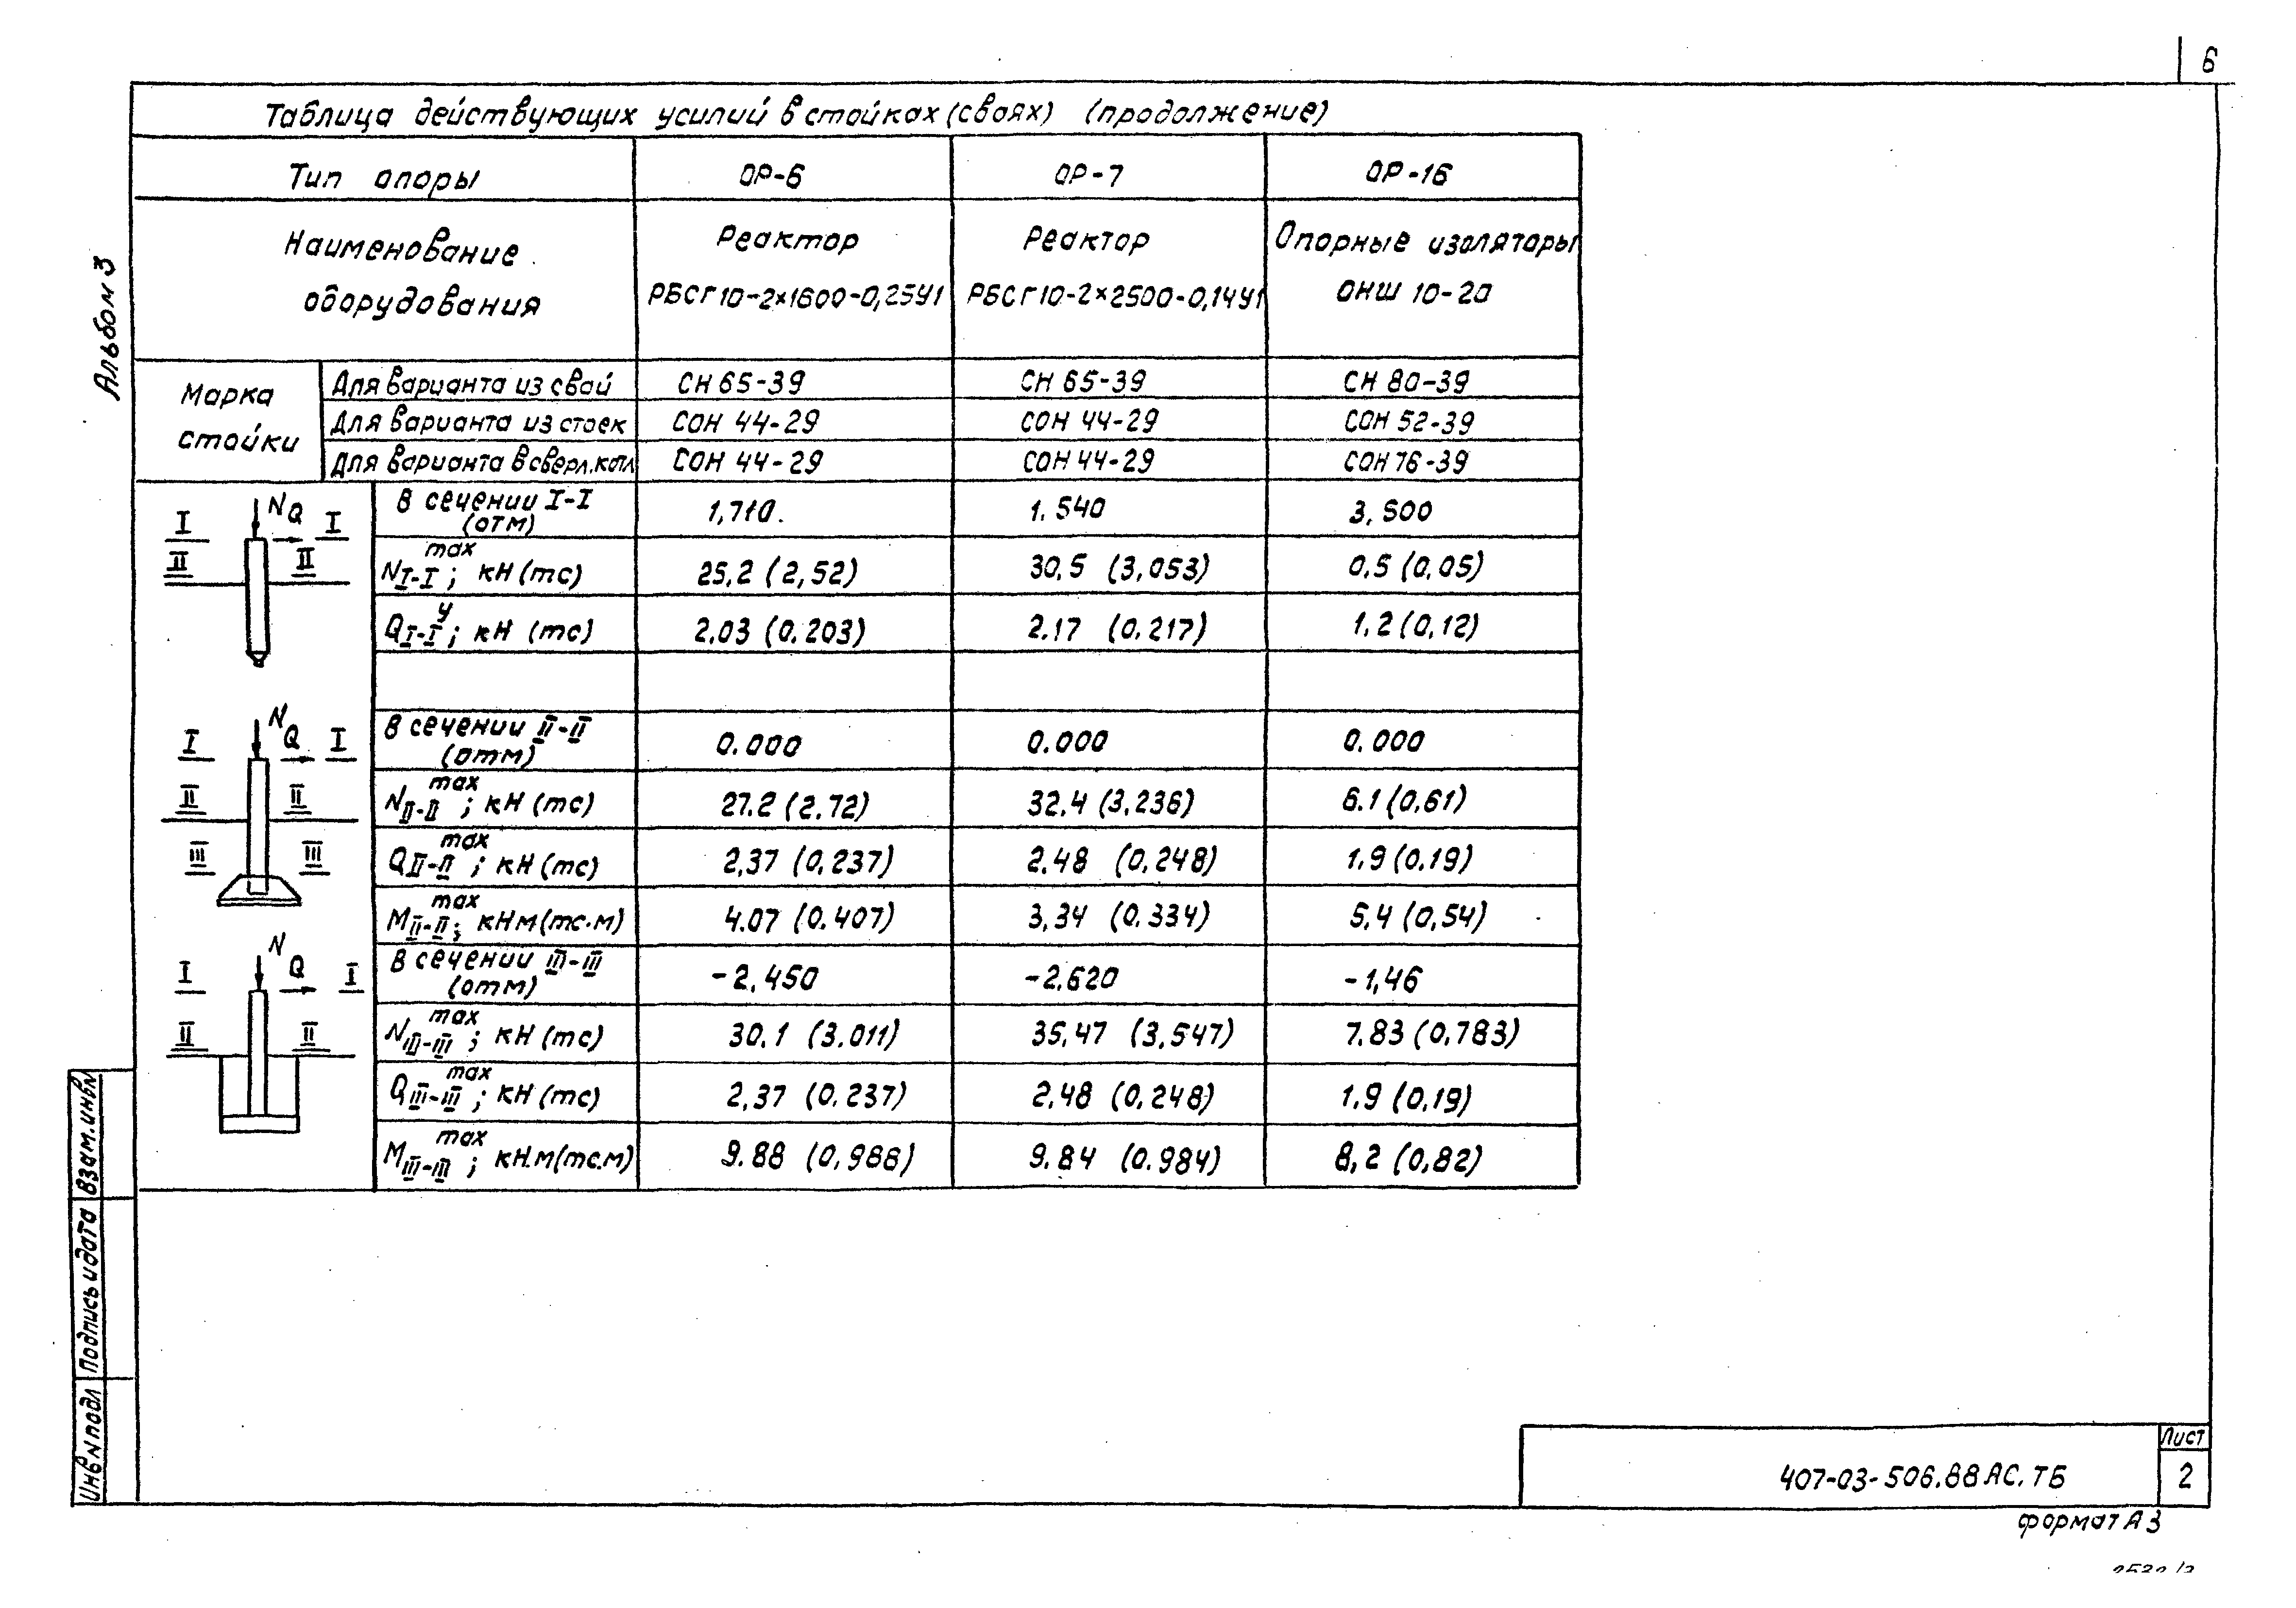 6
Альбом 3
Таблица действующих усилий в стойках (сваях) (продолжение)
Тип опоры ОР-6 ОР-7 ОР-16
Наименование оборудования
Реактор РБСГ10-2×1600-0,25У1
Реактор РБСГ10-2×2500-0,14У1
Опорные изоляторы ОНШ 10-20
Марка стойки
Для варианта из свай СН 65-39 СН 65-39 СН 80-39
Для варианта из стоек СОН 44-29 СОН 44-29 СОН 52-39
Для варианта в сверл.котл СОН 44-29 СОН 44-29 СОН 76-39
В сечении I-I (отм) 1,710. 1.540 3,500
N I-I max; кН (тс) 25,2 (2,52) 30,5 (3,053) 0,5 (0,05)
Q I-I у; кН (тс) 2,03 (0,203) 2.17 (0,217) 1,2 (0,12)
В сечении II-II (отм) 0.000 0.000 0.000
N II-II max; кН (тс) 27.2 (2.72) 32,4 (3,236) 6.1 (0,61)
Q II-II max; кН (тс) 2,37 (0,237) 2.48 (0,248) 1,9 (0.19)
M II-II max; кНм (тс·м) 4.07 (0.407) 3,34 (0.334) 5,4 (0,54)
В сечении III-III (отм) -2,450 -2.620 -1,46
N III-III max; кН (тс) 30.1 (3.011) 35,47 (3,547) 7.83 (0,783)
Q III-III max; кН (тс) 2,37 (0.237) 2,48 (0,248) 1.9 (0,19)
M III-III max; кН.м (тс.м) 9.88 (0,988) 9.84 (0.984) 8,2 (0,82)
N
Q
I I
II II
N
Q
I I
II II
III III
N
Q
I I
II II
Взам.инв N
Подпись и дата
Инв N подл
407-03-506.88 АС.ТБ
Лист
2
формат А3